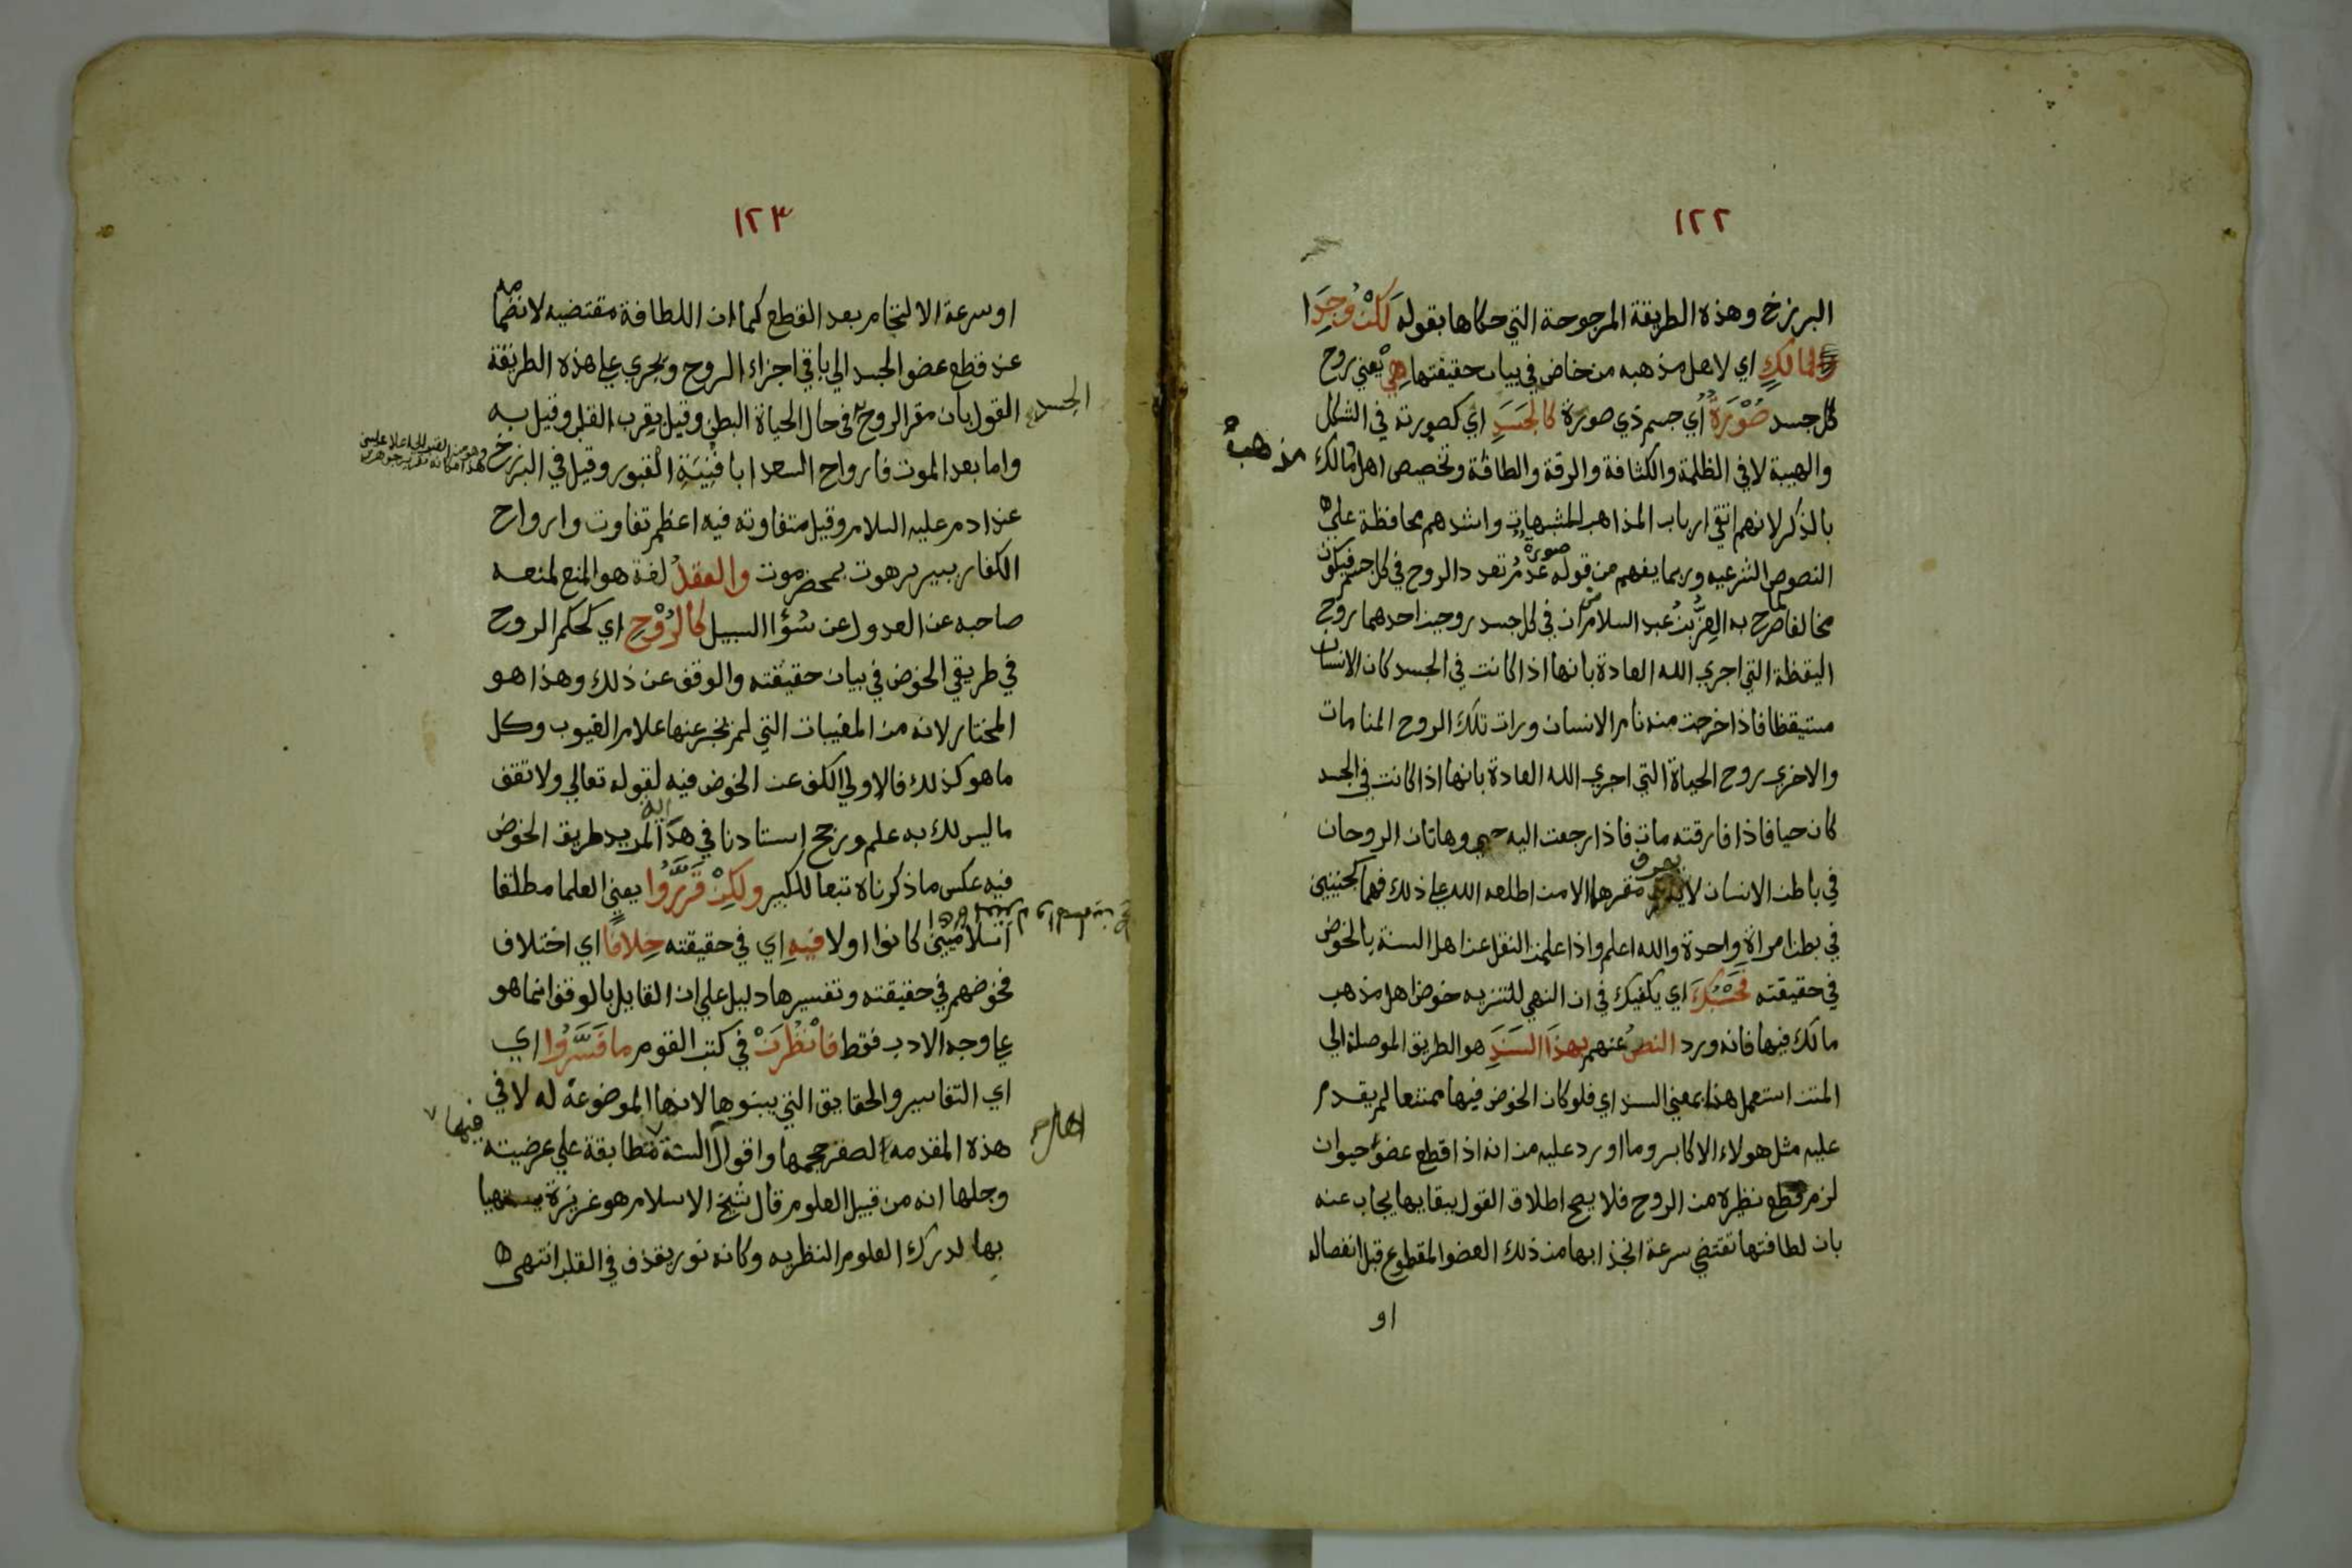 ١٢٢
البرزخ وهذه الطريقة المرجوحة التي حكاها بقوله لَكِنْ وُجِدَا
لمالِكٍ اي لاهل مذهبه من خاض في بيان حقيقتها هِيْ يعني روح
كل جسد صُوْرَةٌ أي جسم ذي صورة كالجَسَدِ اي كصورته في الشكل
والهيبة لا في الظلمة والكثافة والرقة والطافة وتخصيص اهل مالك
مذهب
بالذكر لانهم اتقي ارباب المذاهب للمشبهات واشدهم محافظة علي
النصوص الشرعيه وربما يفهم من قوله صورة عدم تعدد الروح في كل جسم فيكون
مخالفا لما صرح به العِزُّ بنُ عبد السلام من ان في كل جسد روحين احدهما روح
اليقظة التي اجري الله العادة بانها اذا كانت في الجسد كان الانسان
مستيقظا فاذا خرجت منه نام الانسان ورات تلك الروح المنامات
والاخري روح الحياة التي اجري الله العادة بانها اذا كانت في الجسد
كان حيا فاذا فارقته مات فاذا رجعت اليه حيي وهاتان الروحان
في باطن الانسان لا يعرف مقرها الا من اطلعه الله علي ذلك فهما كجنينين
في بطن امراة واحدة والله اعلم واذا علمت النقل عن اهل السنة بالخوض
في حقيقته فَحَسْبُكَ اي يكفيك في ان النهي للتنزيه خوض اهل مذهب
مالك فيها فانه ورد النصُ عنهم بهذا السَنَدِ هو الطريق الموصلة الي
المتن استعمل هذا بمعني السند اي فلو كان الخوض فيها ممتنعا لم يقدم
عليه مثل هولاء الاكابر وما اورد عليه من انه اذا قطع عضو حيوان
لزم قطع نظيره من الروح فلا يصح اطلاق القول ببقايها يجاب عنه
بان لطافتها تقتضي سرعة انجذابها من ذلك العضو المقطوع قبل انفصاله
او
١٢٣
او سرعة الالتحام بعد القطع كما ان اللطافة مقتضيه لانضمامه
عند قطع عضو الجسد الي باقي اجزاء الروح ويجري علي هذه الطريقة
القول بان مقر الروح في حال الحياة البطن وقيل بقرب القلب وقيل به
الجسد
واما بعد الموت فارواح السعدا بافنِيَةِ القبور وقيل في البرزخ
عند ادم عليه السلام وقيل متفاوته فيه اعظم تفاوت وارواح
الكفار ببير برهوت بحضرموت والعقلُ لغة هو المنع لمنعه
صاحبه عن العدول عن سُؤا السبيل كالرُوْحِ اي كحكم الروح
في طريقي الخوض في بيان حقيقته والوقف عن ذلك وهذا هو
المختار لانه من المغيبات التي لم يخبر عنها علام الغيوب وكل
ما هو كذلك فالاولي الكف عن الخوض فيه لقوله تعالي ولا تقف
ما ليس لك به علم ورجح استادنا في هداية المريد طريق الخوض
فيه عكس ما ذكرناه تبعا للكبير ولكِنْ قَرَّرُوا يعني العلما مطلقا
اسلاميّين كانوا اولا فيهِ اي في حقيقته خِلافًا اي اختلاف
فخوضهم في حقيقته وتفسيرها دليل علي ان القايل بالوقف انما هو
علي وجه الادب فقط فانْظُرَنْ في كتب القوم ما فَسَّرُوا اي
اي التفاسير والحقايق التي يبنوها لانها الموضوعة له لا في
هذه المقدمه لصغر حجمها واقوال السنة متطابقة علي عرضيته
فيها
وجلها انه من قبيل العلوم قال شيخ الاسلام هو غريزة يتهيا
بها لدرك العلوم النظريه وكانه نور يقذف في القلب انتهي